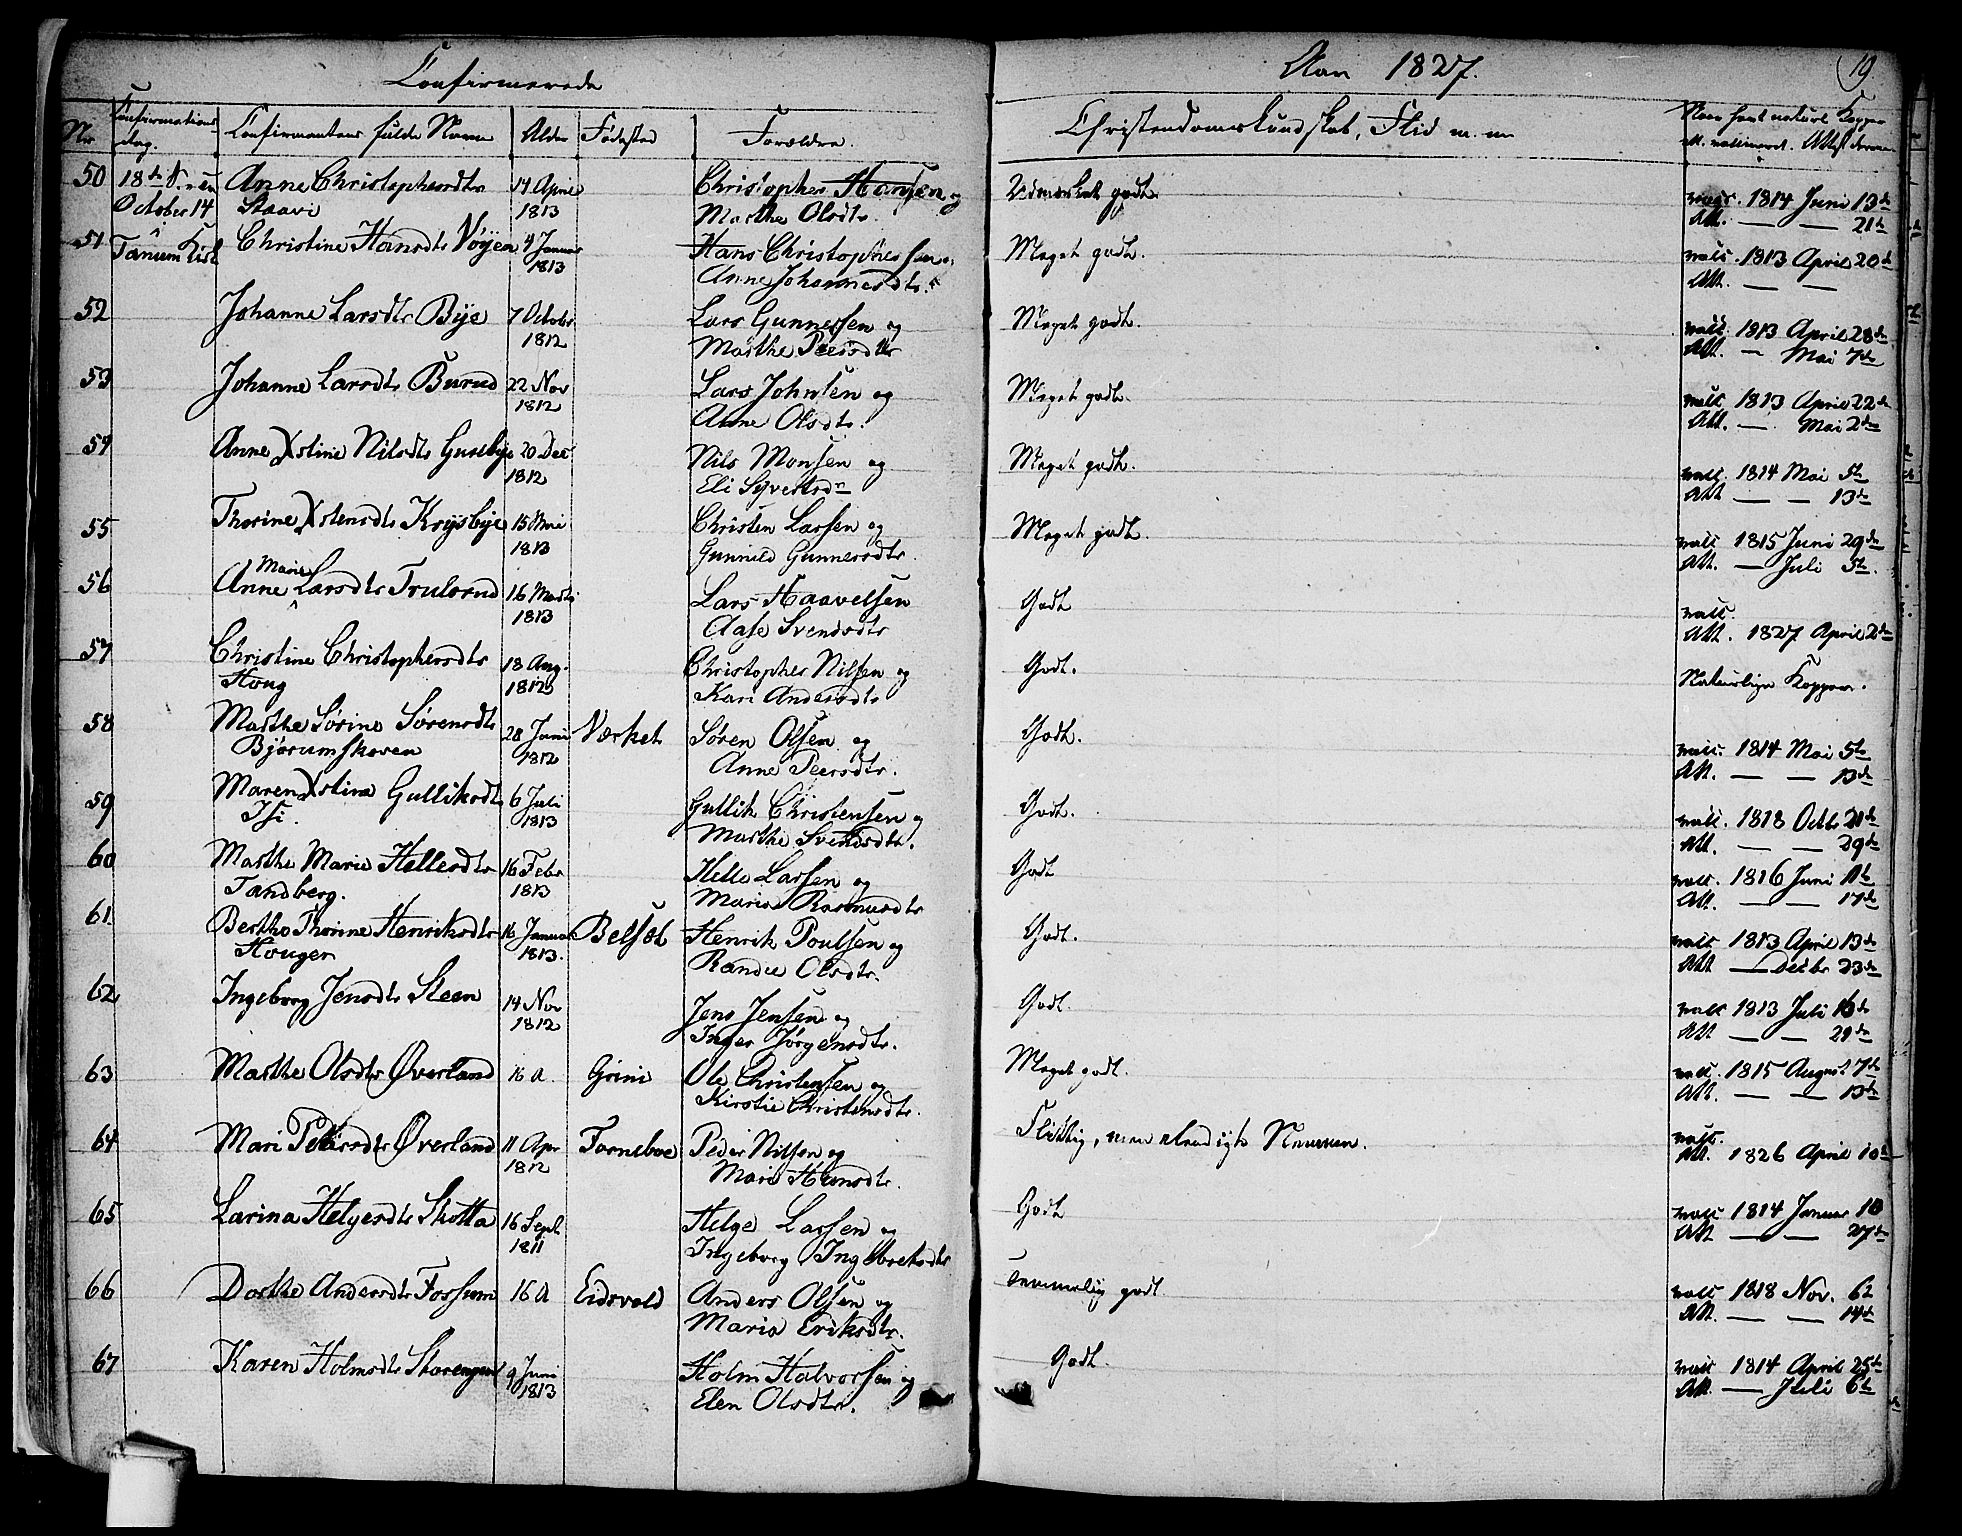 Confirmerede
Aar 1827.
19
Nr
Confirmations
dag.
Confirmantens fulde Navn
Alder
Fødested
Forældre.
Christendomskundskab, Flid m. m.
Naar havt naturl. Kopper
ell. vaccineret. Attest derom
50 18de S. e. Tr. Anne Christophersdtr 14 April Christopher Hansen og Udmærket godt. vacc. 1814 Juni 13de
October 14 Staavi 1813 Marthe Olsdtr. Att. — — 21de
51 Tanum Kirk Christine Hansdtr Vøyen 4 Januar Hans Christophersen og Meget godt. vacc. 1813 April 20de
1813 Anne Johannesdtr. Att. — —
52 Johanne Larsdtr Bye 7 Octobr Lars Gunnersen og Meget godt. vacc. 1813 April 28de
1812 Marthe Peersdtr Att. — Mai 7de
53 Johanne Larsdtr Burud 22 Nov Lars Johnsen og Meget godt. vacc. 1813 April 22de
1812 Anne Olsdtr. Att. — Mai 2den
54 Anne Xstine Nilsdtr Gusebye 20 Dec Nils Monsen og Meget godt. vacc. 1814 Mai 5te
1812 Eli Syvertsdr Att — — 13de
55 Thorine Xstensdtr Krysbye 15 Mai Christen Larsen og Meget godt. vacc. 1815 Juni 29de
1813 Gunnild Gunnersdtr. Att. — Juli 5te.
56 Anne Marie Larsdtr Trulsrud 16 Marts Lars Haavelsen Godt vacc.
1813 Aase Svendsdtr Att. 1827 April 2de
57 Christine Christophersdtr 18 Aug. Christopher Nilsen og Godt. Naturlige Kopper.
Houg 1812 Kari Andersdtr
58 Marthe Sørine Sørensdtr 28 Juni Værket Søren Olsen og Godt. vacc. 1814 Mai 5te
Bjørumskoven 1812 Anne Peersdtr. Att. — — 13de
59 Maren Xstine Gulliksdtr 6 Juli Gullik Christensen og Godt. vacc. 1818 Octb 21de
Isi. 1813 Marthe Svendsdtr. Att. — — 29de
60 Marthe Marie Hellesdtr 16 Febr Helle Larsen og Godt vacc. 1816 Juni 11te
Tandberg. 1813 Maria Rasmusdtr Att. — — 17de
61. Berthe Thorine Henriksdtr 16 Januar Belsæt Henrik Poulsen og Godt. vacc 1813 April 13de
Houger 1813. Randie Olsdtr. Att — Decbr 23de
62 Ingeborg Jensdtr Steen 14 Nov Jens Jensen og Godt. vacc 1813 Juli 16de
1812 Inger Jørgensdtr. Att — — 21de
63 Marthe Olsdtr Øverland 16 a. Grini Ole Christensen og Meget godt. vacc. 1815 August 7de
Kirstie Christensdtr. Att. — — 13de
64 Mari Pedersdtr Øverland 11 Apr Forneboe Peder Nilsen og Flittig, men vacc.
1812 Mari Hansdtr. Att. 1826 April 10de
65 Larina Helgesdtr Skotta 16 Sept Helge Larsen og Godt vacc 1814 Januar 10
1811 Ingeborg Ingebretsdtr Att — — 27de
66 Dorthe Andersdtr Fossum 16 A Eidsvold Anders Olsen og Temmelig godt vacc 1818 Nov. 6te
Maria Eriksdtr. Att. — — 14de
67 Karen Holmsdtr Storengen 9 Juni Holm Halvorsen og Godt. vacc 1814 April 25de
1813 Elen Olsdtr. Att. — Juli 6te